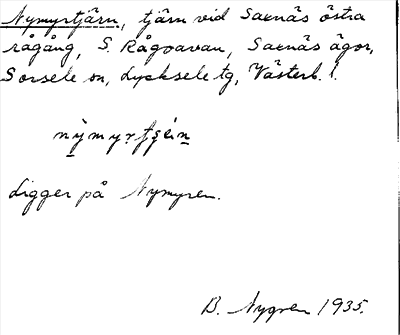 Nymyrtjärn, tjärn vid Saxnäs östra
rågång, S. Rågoavan, Saxnäs ägor,
Sorsele sn, Lycksele tg, Västerb. l.
Ligger på Nymyren.
B. Nygren 1935.